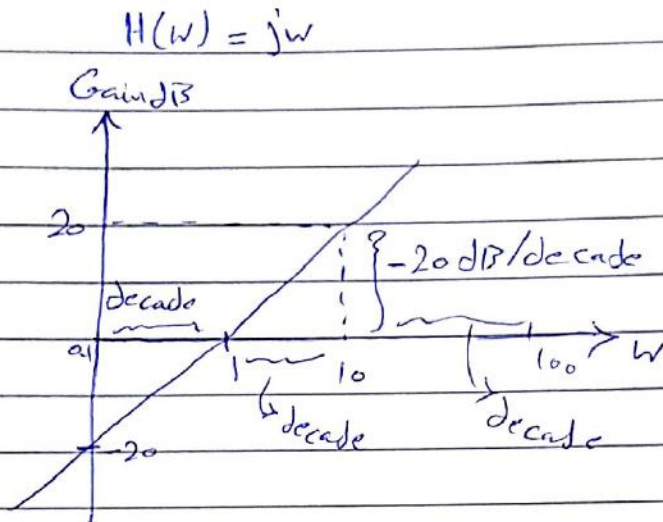 H(w) = jw
Gain dB
20
-20 dB/decade
decade
0.1
1
10
100
w
decade
decade
-20